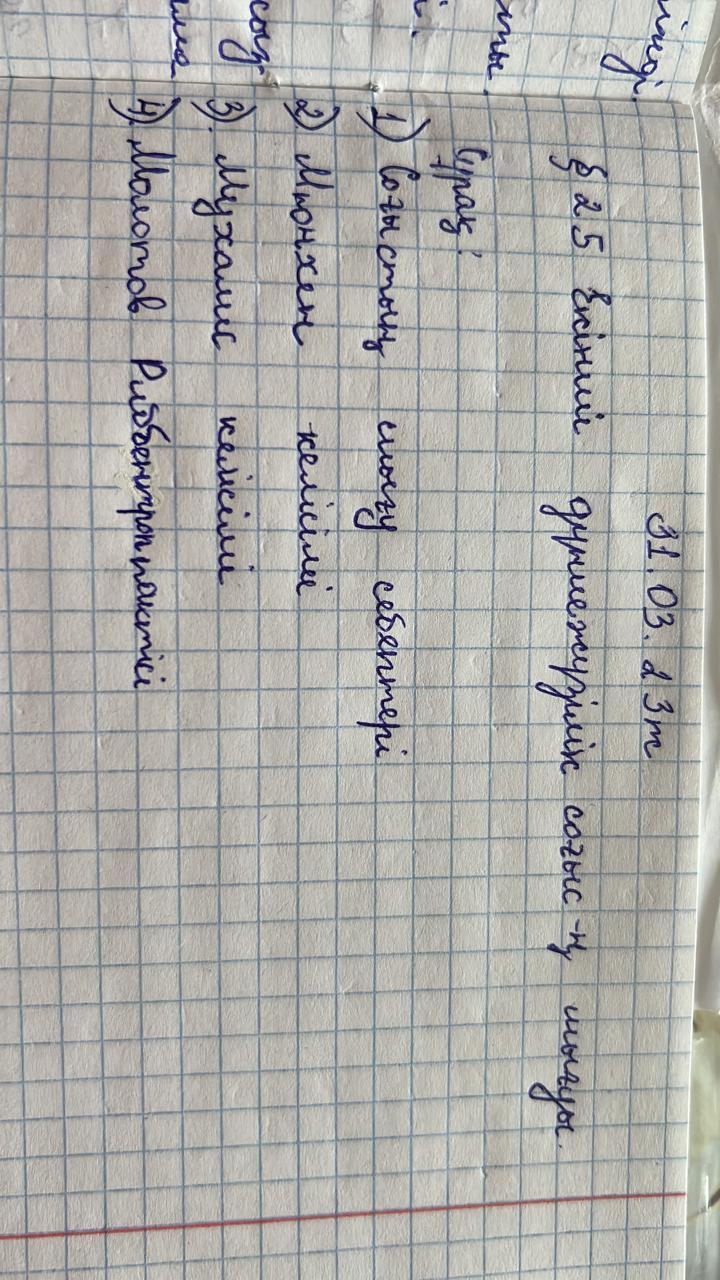 31.03.23т
§ 25 Екінші дүниежүзілік соғыс-ң шығуы.
Сұрақ:
1) Соғыстың шығу себептері
2) Мюнхен келісімі
3) Мухамис келісімі
4) Молотов Риббентроп пактісі